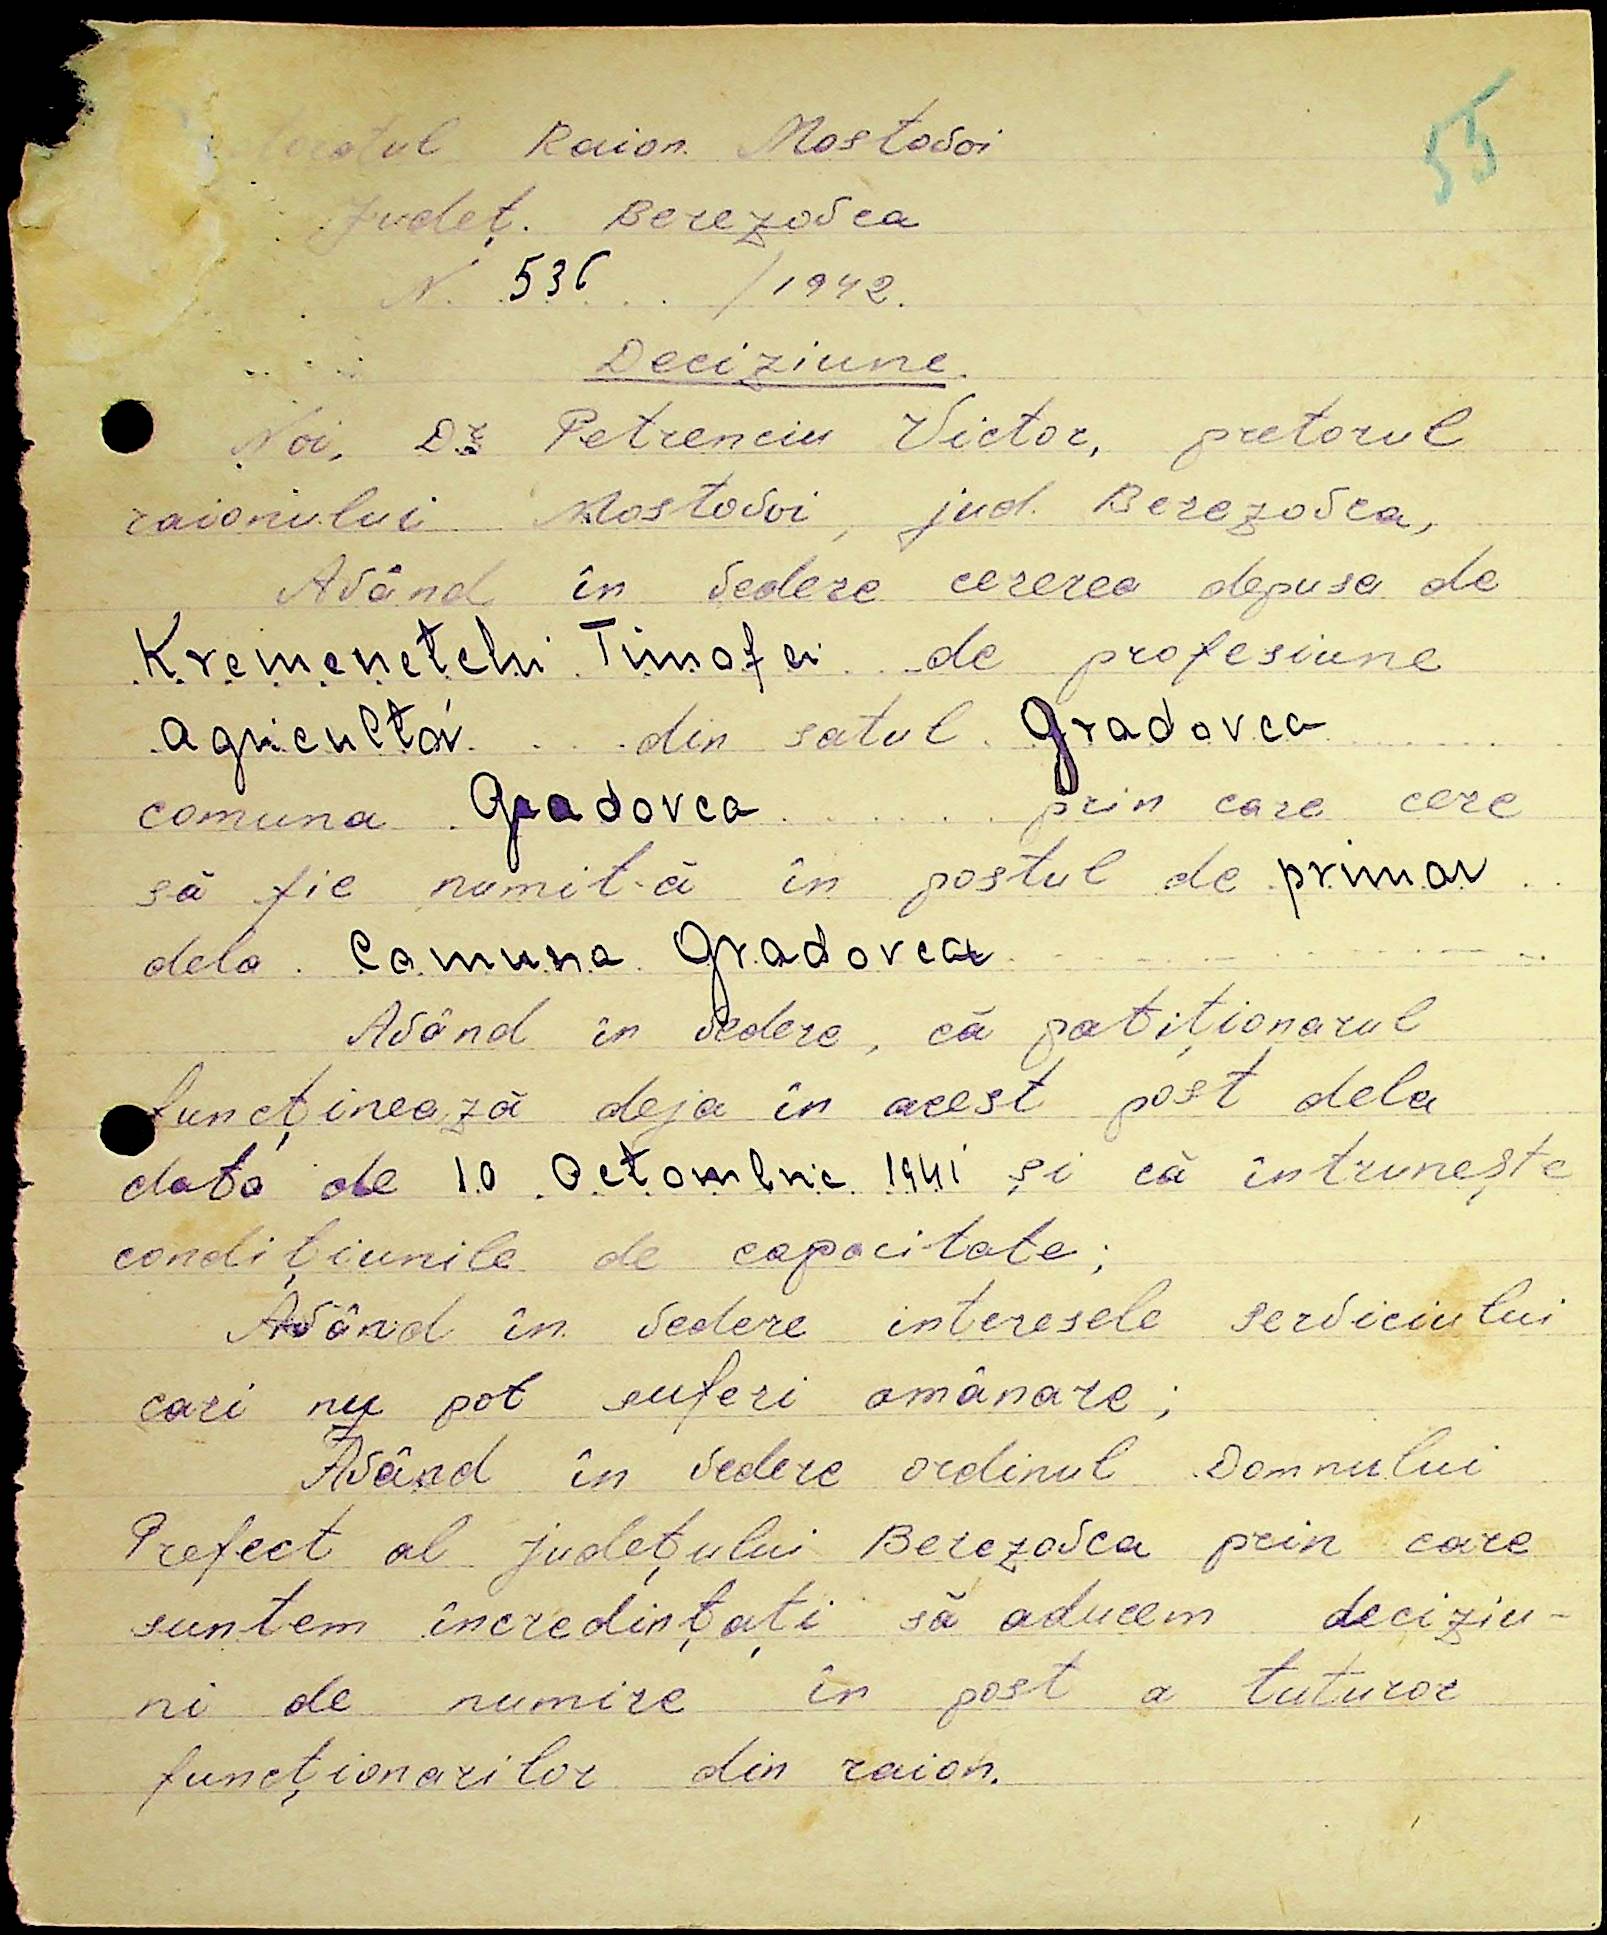 55
Raion. Mostovoi
Județ. Berezovca
N. 536 /1942.
Deciziune.
Noi, Dr Petrenciu Victor, pretorul
raionului Mostovoi, jud. Berezovca,
Având în vedere cererea depusa de
Kremenetchi Timofei de profesiune
agricultor din satul Gradovca
comuna Gradovca prin care cere
să fie numit-ă în postul de primar
dela Comuna Gradovca
Având în vedere, că patiționarul
funcținează deja în acest post dela
data de 10 Octombrie 1941 și că întrunește
condițiunile de capacitate;
Având în vedere interesele serviciului
cari nu pot suferi amânare;
Având în vedere ordinul Domnului
Prefect al județului Berezovca prin care
suntem încredințați să aducem deciziu-
ni de numire în post a tuturor
funcționarilor din raion.